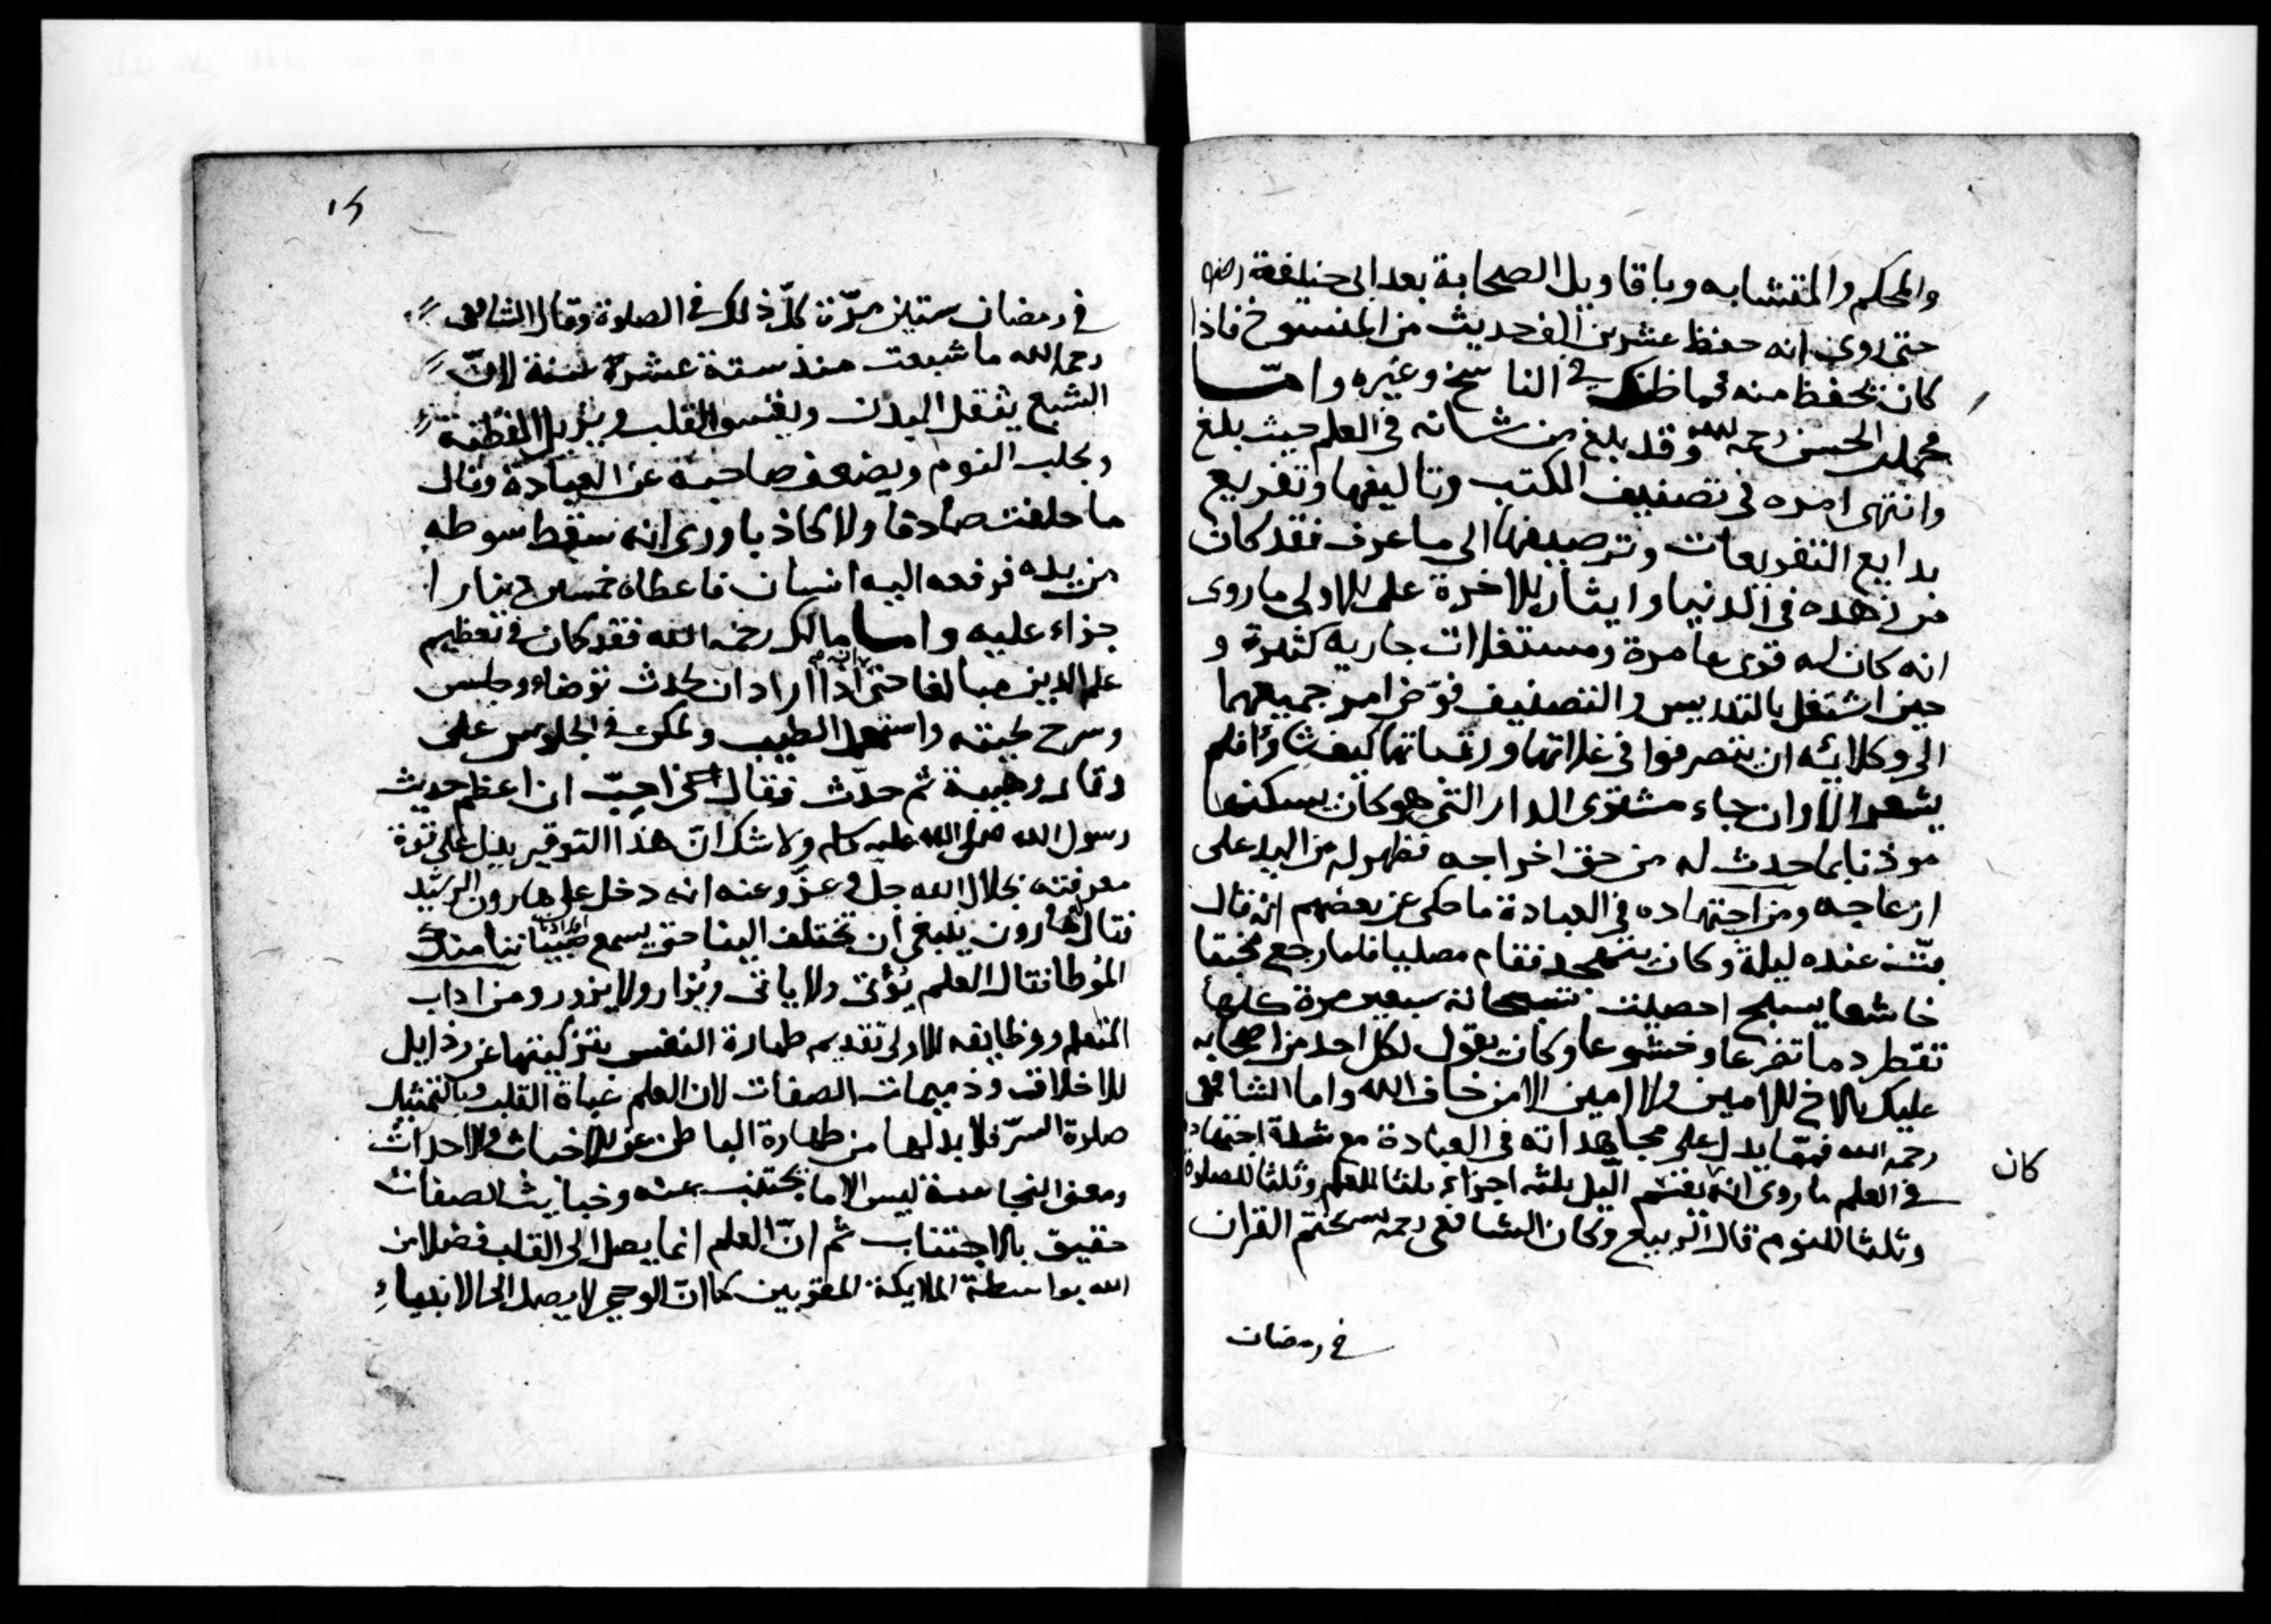 والمحكم والمتشابه وباقاويل الصحابة بعد ابى حنيفة رضه
حتى روى انه حفظ عشرين الف حديث من المنسوخ فاذا
كان يحفظ منه فما ظنك في الناسخ وغيره واما
محمد بن الحسن رحمه الله وقد بلغ من شانه فى العلم حيث بلغ
وانتهى امره فى تصنيف الكتب وتاليفها وتفريع
بدايع التفريعات وترصيفها الى ما عرف فقد كان
من زهده فى الدنيا وايثار الاخرة على الاولى ما روى
انه كان له قرى عامرة ومستغلات جارية كثيرة و
حين اشتغل بالتدريس والتصنيف فوّض امر جميعها
الى وكلائه ان يتصرفوا فى غلاتها كيف شاؤا فلم
يشعر الا وان جاء مشترى الدار التى هو كان يسكنها
موذنا بما حدث له من حق اخراجه فظهر له من اليد على
ازعاجه ومن اجتهاده فى العبادة ما حكى عن بعضهم انه قال
بتّ عنده ليلة وكان يتهجد فقام مصليا فلما رجع
خاشعا يسبح احصيت سبعين مرة كلها
تقطر دما تضرعا وخشوعا وكان يقول لكل احد من اصحابه
عليك بالاخ الامين ولا امين الا من خاف الله واما الشافعى
رحمه الله فممّا يدل على مجاهداته فى العبادة مع شدة اجتهاده
فى العلم ما روى انه يقسم الليل ثلثه اجزاء ثلثا للعلم وثلثا للصلوة
كان
وثلثا للنوم قال الربيع وكان الشافعى رحمه الله يختم القران
في رمضان
١٥
في رمضان ستين مرّة كلّ ذلك في الصلوة وقال الشافعى
رحمه الله ما شبعت منذ ستة عشرة سنة لانّ
الشبع يثقل البدن ويقسى القلب ويزيل الفطنة
ويجلب النوم ويضعف صاحبه عن العبادة وقال
ما حلفت صادقا ولا كاذبا وروى انه سقط سوطه
من يده فرفعه اليه انسان فاعطاه خمسين دينارا
جزاء عليه واما مالك رحمه الله فقد كان فى تعظيم
علم الدين مبالغا حتى اذا اراد ان يحدث توضاء وجلس
وسرح لحيته واستعمل الطيب وتمكن فى الجلوس على
وقار وهيبة ثم حدّث فقال احبّ ان اعظم حديث
رسول الله صلى الله عليه وسلم ولا شك انّ هذا التوقير يدل على قوة
معرفته بجلال الله جل وعزّ وعنه انه دخل على هارون الرشيد
فقال هارون ينبغى ان تختلف الينا حتى يسمع صبياننا منك
الموطا فقال العلم يؤتى ولا ياتى ويُزار ولا يزور ومن اداب
المتعلم ووظايفه الاولى تقديم طهارة النفس بتزكيتها عن رذايل
الاخلاق وذميمات الصفات لان العلم عبادة القلب
صلوة السرّ فلا بد لها من طهارة الباطن عن الاخباث والاحداث
ومعنى النجاسة ليس الا ما يجتنب عنه وخبايث الصفات
حقيق بالاجتناب ثم انّ العلم انما يصل الى القلب فضلا من
الله بواسطة الملايكة المقربين كما انّ الوحى لا يصل الى الانبياء